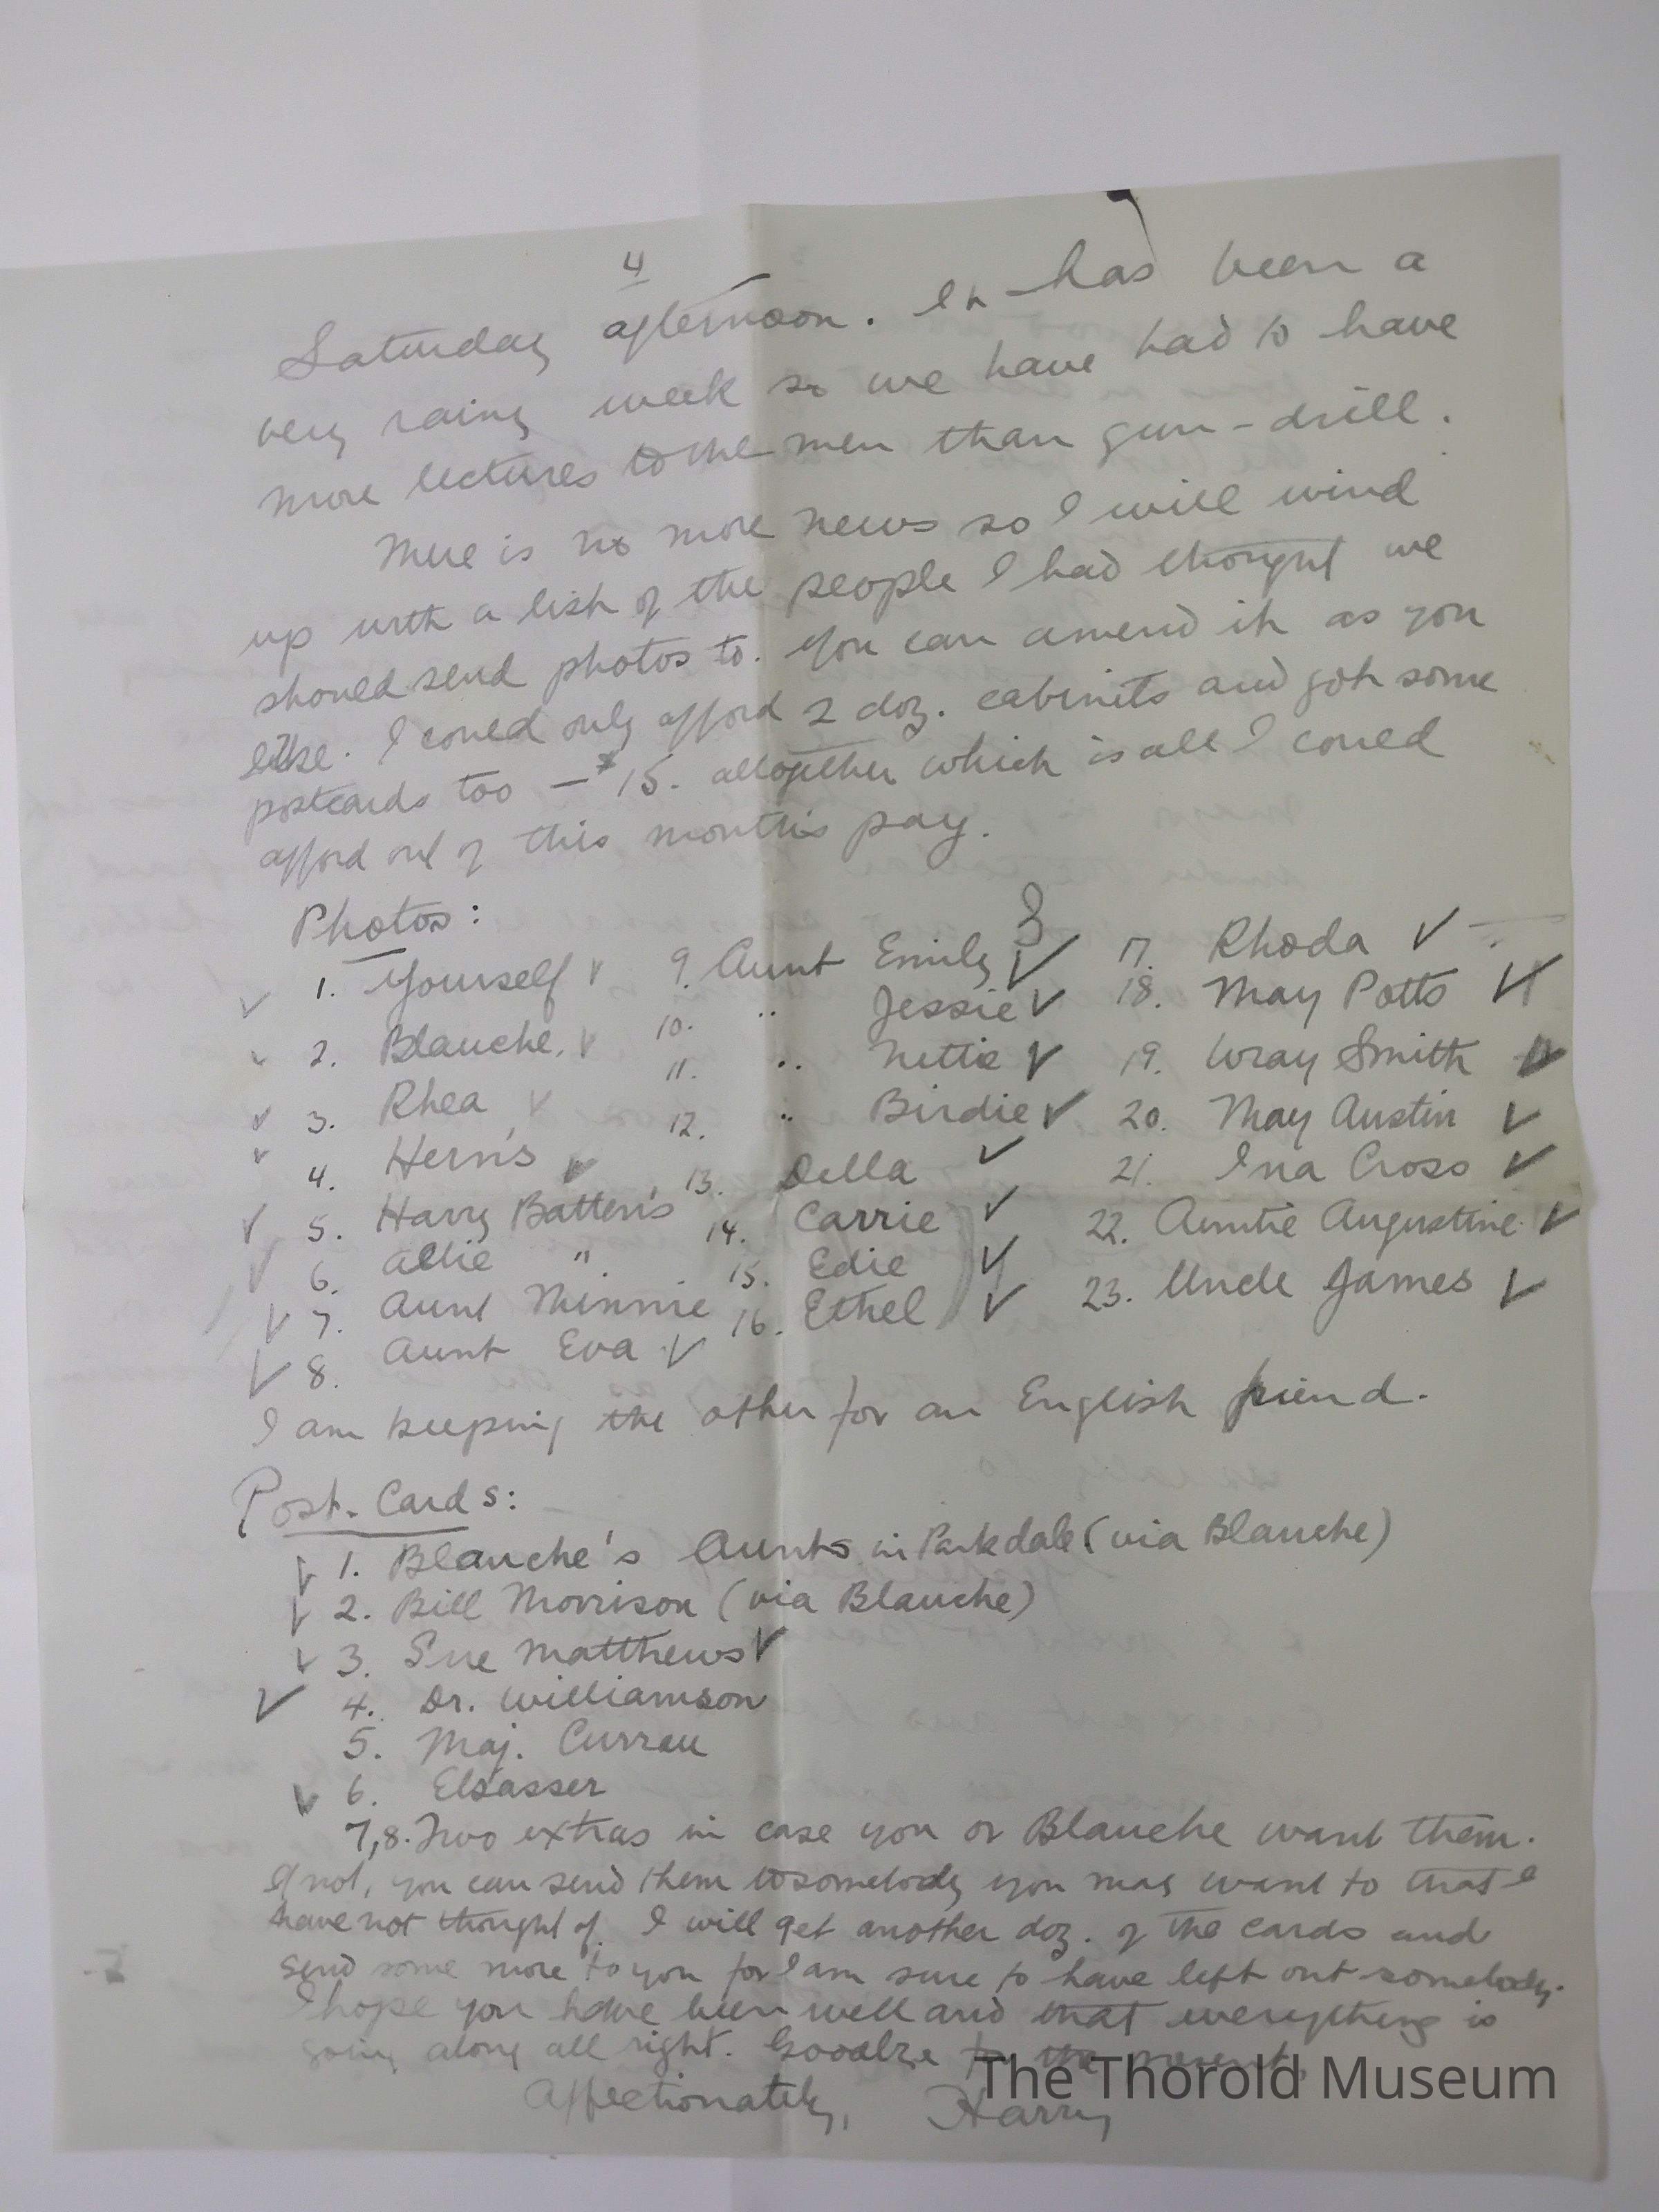 4
Saturday afternoon. It has been a
very rainy week so we have had to have
more lectures to the men than gun-drill.
There is no more news so I will wind
up with a list of the people I had thought we
should send photos to. You can amend it as you
like. I could only afford 2 doz. cabinets and got some
postcards too — $15. altogether which is all I could
afford out of this month's pay.
Photos:
✓ 1. Yourself ✓
✓ 2. Blanche. ✓
✓ 3. Rhea ✓
✓ 4. Hern's ✓
✓ 5. Harry Batten's
✓ 6. Allie "
✓ 7. Aunt Minnie
✓ 8. Aunt Eva ✓
9. Aunt Emily ✓
10. " Jessie ✓
11. " Nettie ✓
12. " Birdie ✓
13. Della ✓
14. Carrie ✓
15. Edie ✓
16. Ethel ✓
17. Rhoda ✓
18. May Potts ✓
19. Wray Smith ✓
20. May Austin ✓
21. Ina Cross ✓
22. Auntie Augustine ✓
23. Uncle James ✓
I am keeping the other for an English friend.
Post-Cards:
✓ 1. Blanche's Aunts in Parkdale (via Blanche)
✓ 2. Bill Morrison (via Blanche)
✓ 3. Sue Matthews ✓
✓ 4. Dr. Williamson
5. Maj. Curran
✓ 6. Elsasser
7,8. Two extras in case you or Blanche want them.
If not, you can send them to somebody you may want to that I
have not thought of. I will get another doz. of the cards and
send some more to you for I am sure to have left out somebody.
I hope you have been well and that everything is
going along all right. Goodbye for the present,
Affectionately, Harry
The Thorold Museum